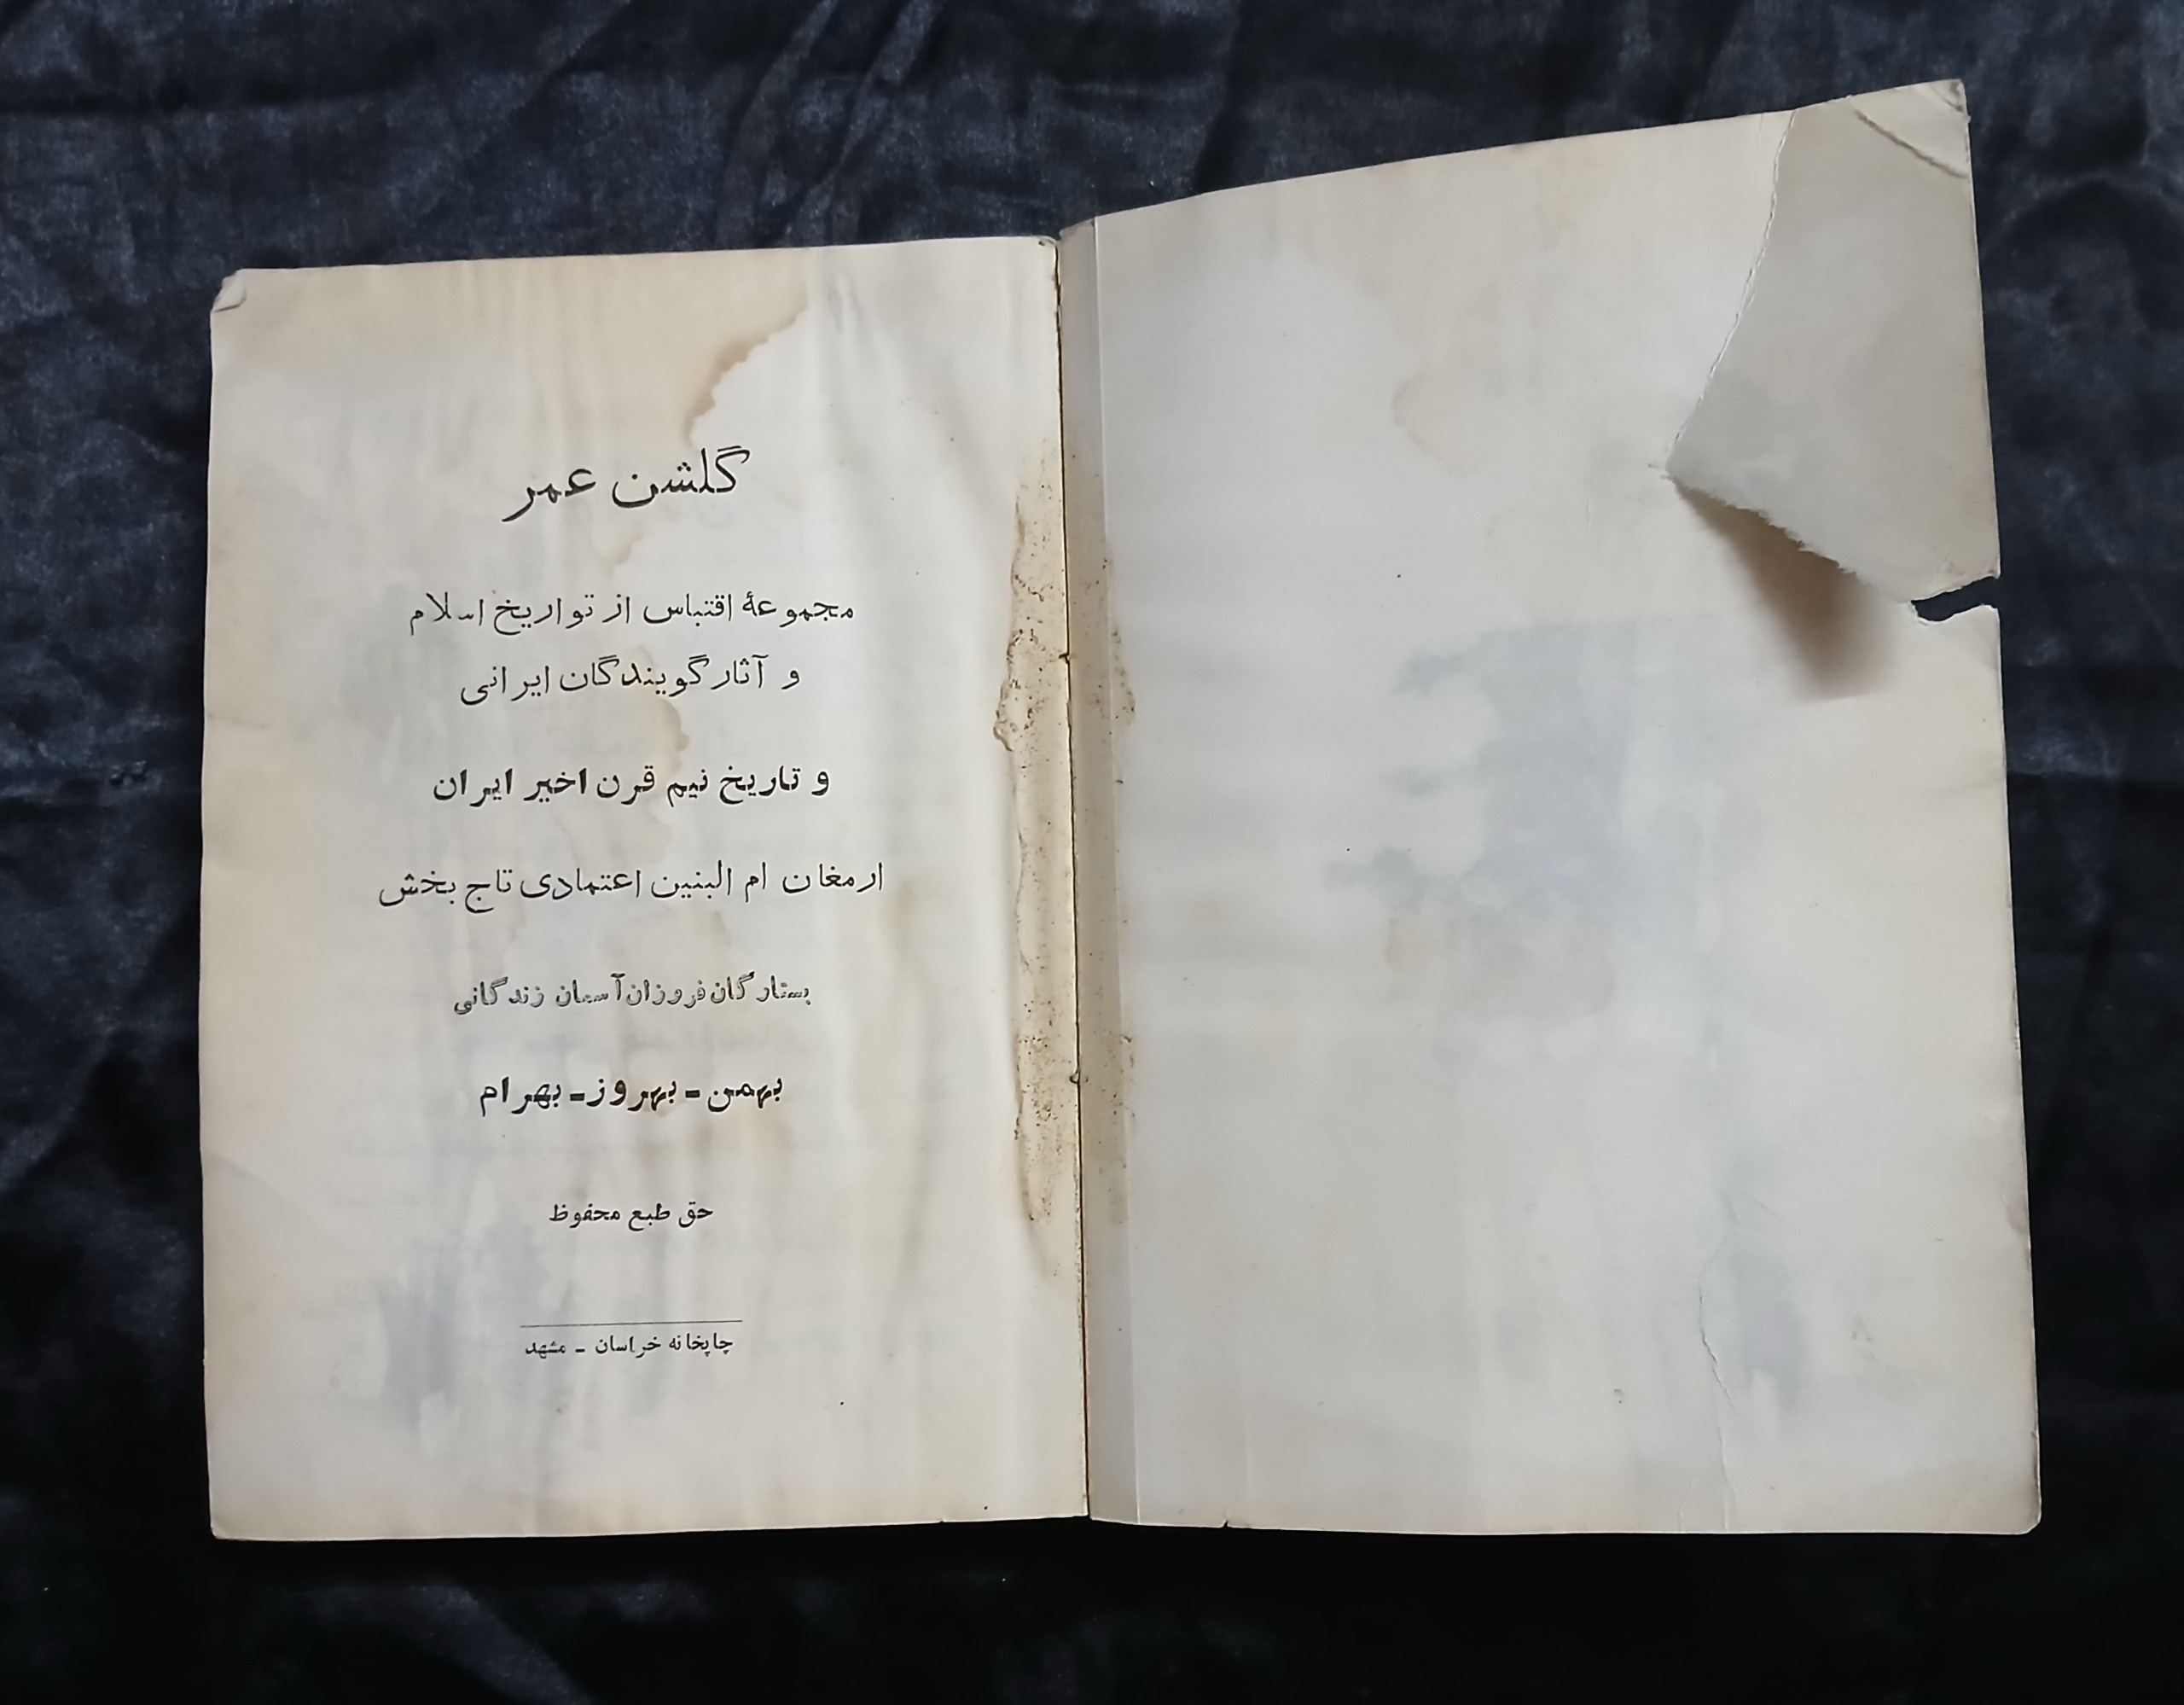 گلشن عمر
مجموعهٔ اقتباس از تواریخ اسلام
و آثار گویندگان ایرانی
و تاریخ نیم قرن اخیر ایران
ارمغان ام البنین اعتمادی تاج بخش
بستارگان فروزان آسمان زندگانی
بهمن ـ بهروز ـ بهرام
حق طبع محفوظ
چاپخانه خراسان ـ مشهد